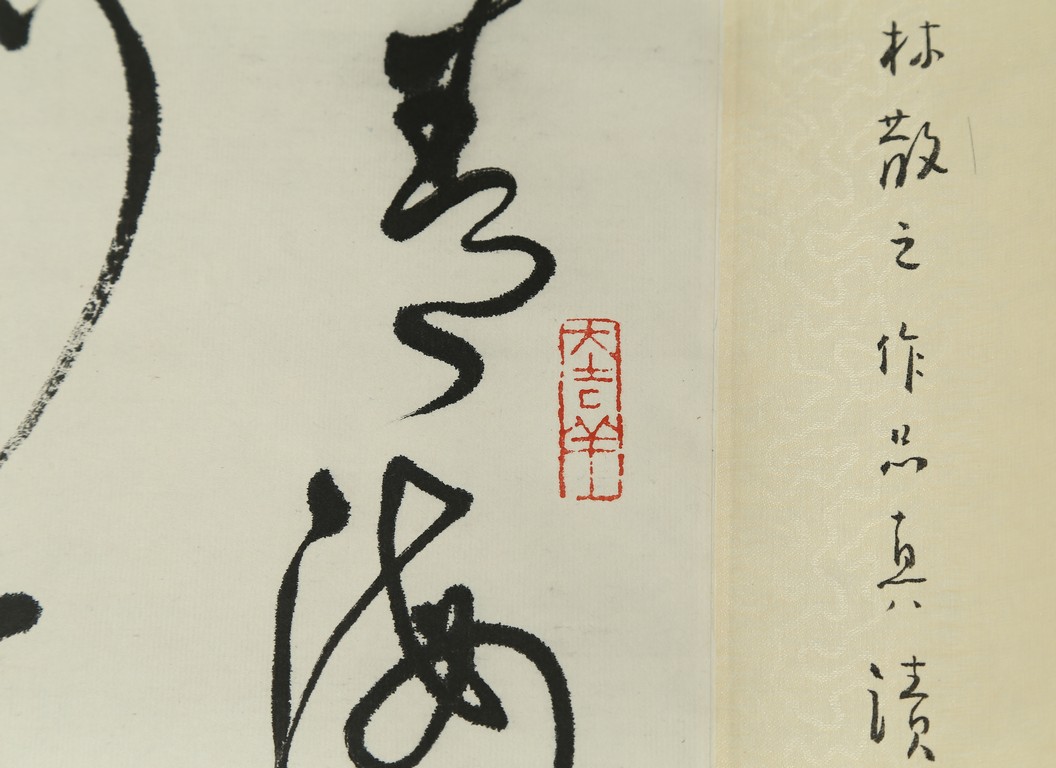 林散之作品真渍
大吉羊
青海